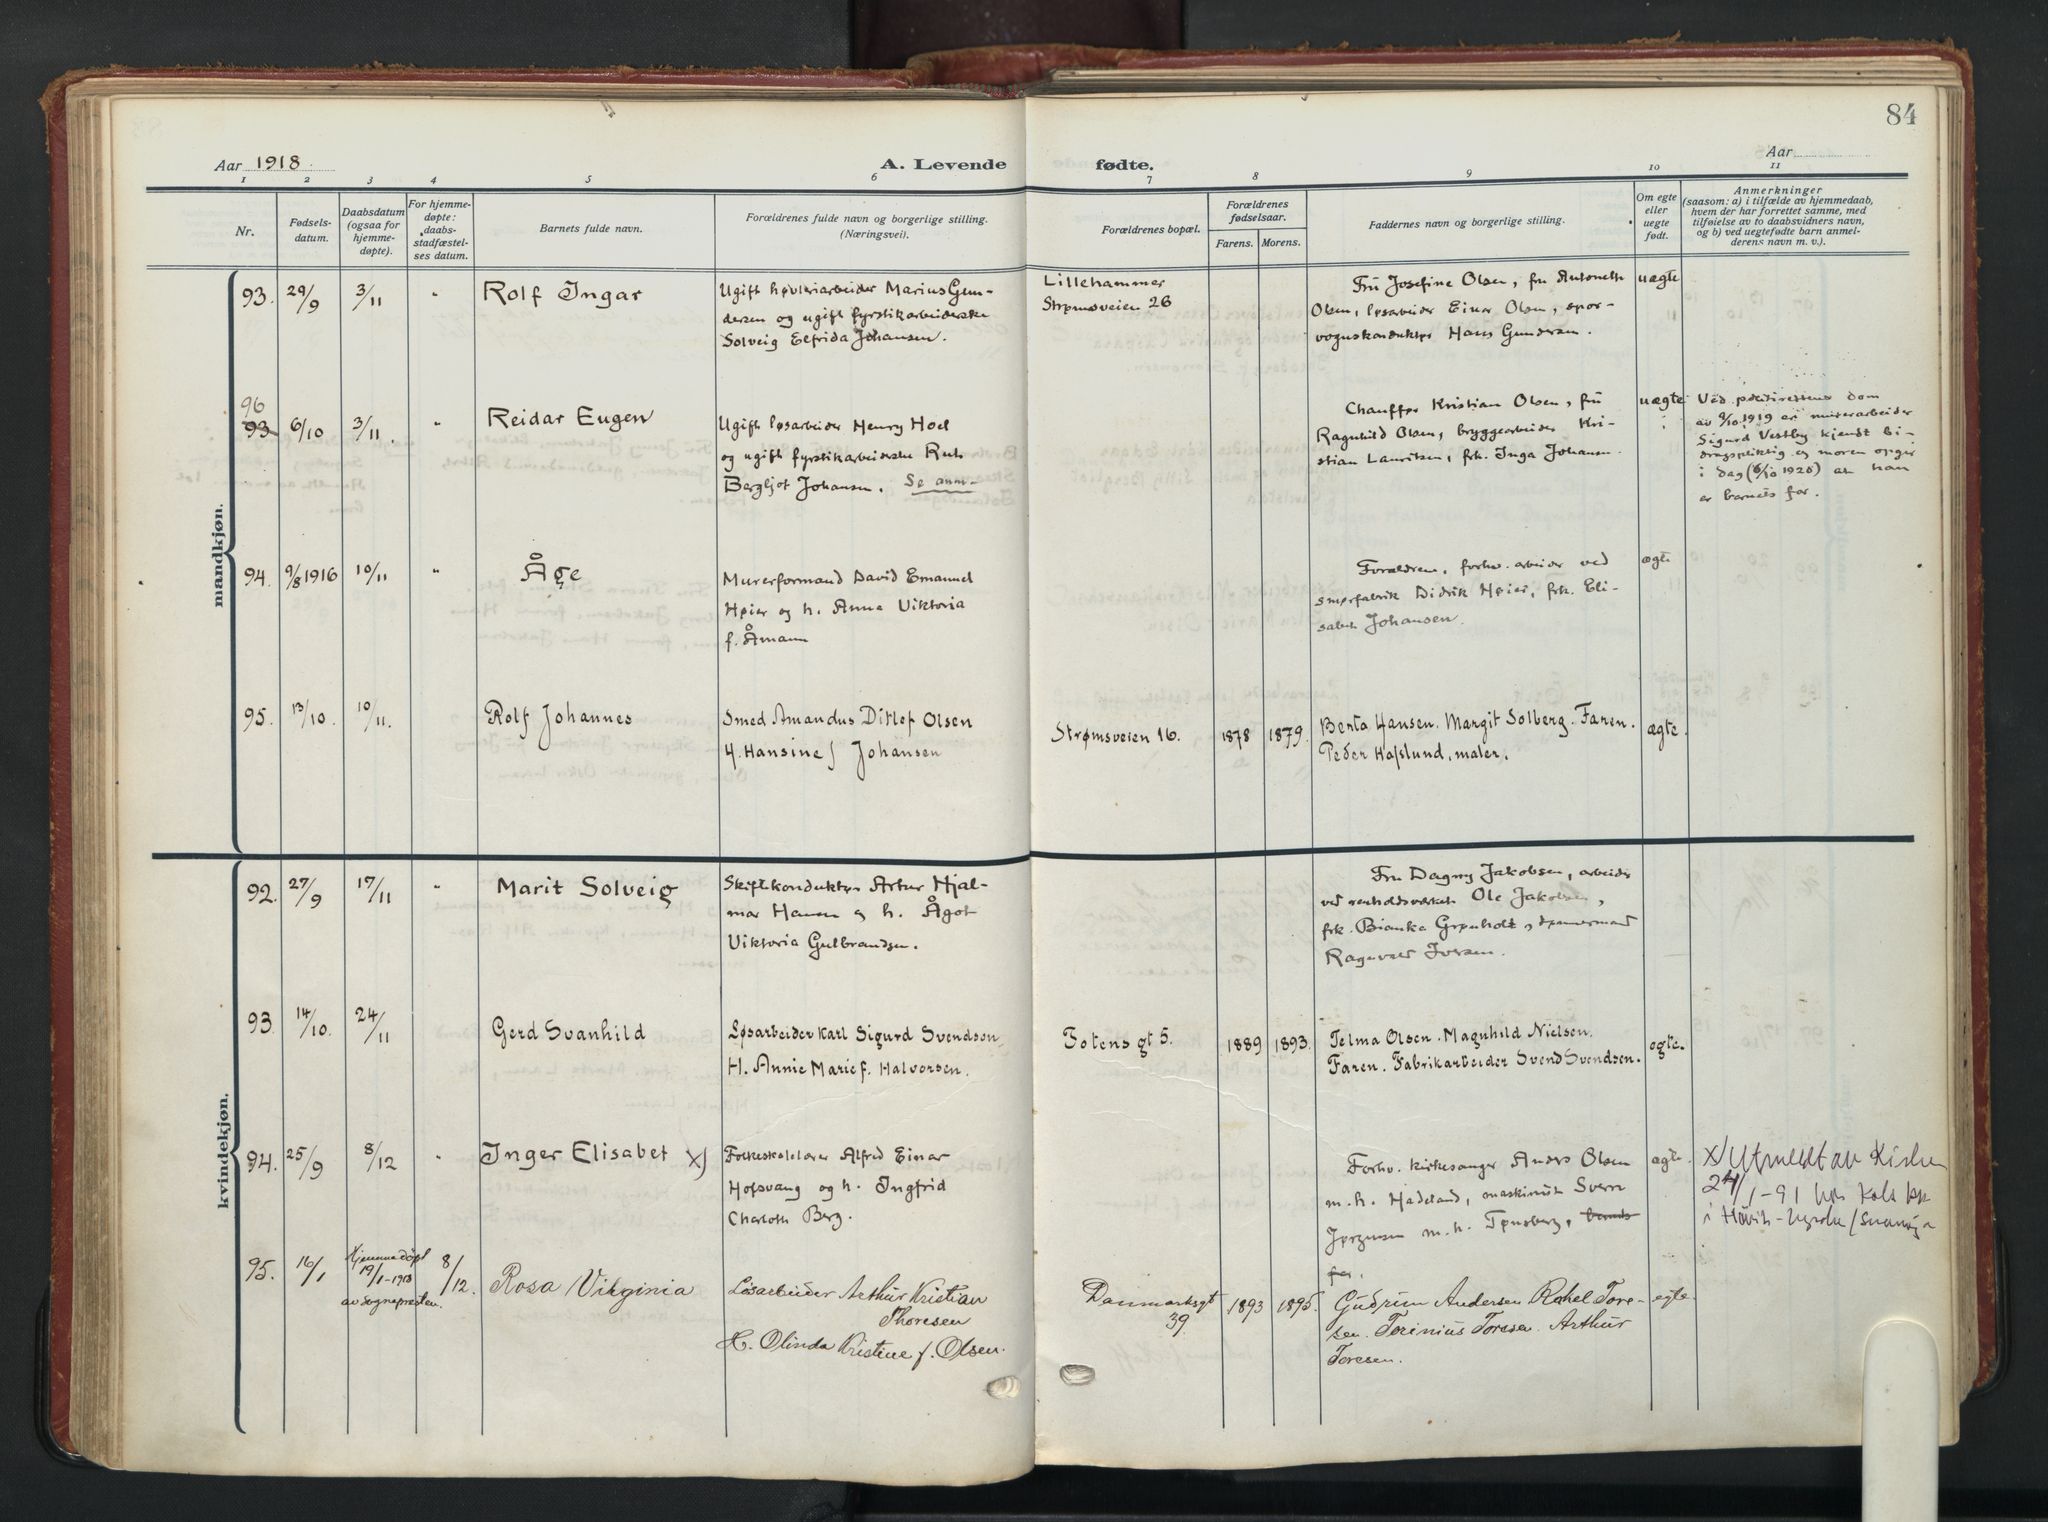 84
Aar 1918.
A. Levende fødte.
Aar
1 2 3 4 5 6 7 8 9 10 11
Nr.
Fødsels-
datum.
Daabsdatum
(ogsaa for
hjemme-
døpte).
For hjemme-
døpte:
daabs-
stadfæstel-
ses datum.
Barnets fulde navn.
Forældrenes fulde navn og borgerlige stilling.
(Næringsvei).
Forældrenes bopæl.
Forældrenes
fødselsaar.
Farens. Morens.
Faddernes navn og borgerlige stilling.
Om egte
eller
uegte
født.
Anmerkninger
(saasom: a) i tilfælde av hjemmedaab,
hvem der har forrettet samme, med
tilføielse av to daabsvidners navn,
og b) ved uegtefødte barn anmel-
derens navn m. v.).
mandkjøn.
93. 29/9 3/11 " Rolf Ingar
Ugift høvleriarbeider Marius Gun-
dersen og ugift fyrstikarbeiderske
Solveig Elfrida Johansen.
Lillehammer
Strømsveien 26
Fru Josefine Olsen, fru Antonette
Olsen, løsarbeider Einar Olsen, spor-
vognskonduktør Hans Gundersen.
uægte
"
96
93 6/10 3/11. " Reidar Eugen
Ugift løsarbeider Henry Hoel
og ugift fyrstikarbeiderske Rut
Bergljot Johansen. Se anm.
Chauffør Kristian Olsen, fru
Ragnhild Olsen, bryggearbeider Kri-
stian Lauritsen, frk. Inga Johansen.
uægte
Ved politirettens dom
av 9/10 1919 er murerarbeider
Sigurd Vestby kjendt bi-
dragspliktig og moren opgir
i dag (6/10 1925) at han
er barnets far.
94. 9/8 1916 10/11 " Åge
Murerformand David Emanuel
Høier og h. Anna Viktoria
f. Åmann
Forældrene, forhv. arbeider ved
smørfabrik Didrik Høier, frk. Eli-
sabet Johansen.
ægte
95. 13/10. 10/11. Rolf Johannes
Smed Amandus Ditlef Olsen
H. Hansine f Johansen
Strømsveien 16. 1878 1879.
Berta Hansen. Margit Solberg. Faren.
Peder Hafslund, maler.
ægte.
kvindekjøn.
92. 27/9 17/11 " Marit Solveig
Skiftkonduktør Artur Hjal-
mar Hansen og h. Ågot
Viktoria Gulbrandsen.
Fru Dagny Jakobsen, arbeider
ved renholdsverket Ole Jakobsen,
frk. Bianka Grønholt,
Ragnvald Iversen.
93. 14/10. 24/11 Gerd Svanhild
Løsarbeider Karl Sigurd Svendsen,
H. Annie Marie f. Halvorsen.
Totens gt 5. 1889 1893.
Telma Olsen. Magnhild Nielsen.
Faren. Fabrikarbeider Svend Svendsen.
egte.
94. 25/9 8/12 " Inger Elisabet x)
Folkeskolelærer Alfred Einar
Hofsvang og h. Ingfrid
Charlotte Berg.
Forhv. kirkesanger Anders Olsen
m. h. Hadeland, maskinist Sverre
Jørgensen m. h. Tønsberg,
ægte.
x) Utmeldt av Kirken
24/1-91
95. 16/1 Hjemmedøpt
19/1-1918
av Sognepresten. 8/12. Rosa Virginia
Løsarbeider Arthur Kristian
Thoresen
H. Olinda Kristine f. Olsen.
Danmarksgt
39. 1893 1895.
Gudrun Andersen Rakel Tore-
sen. Torinius Toresen. Arthur
Toresen.
egte.